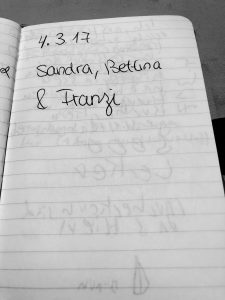 4.3.17
Sandra, Bettina
& Franzi